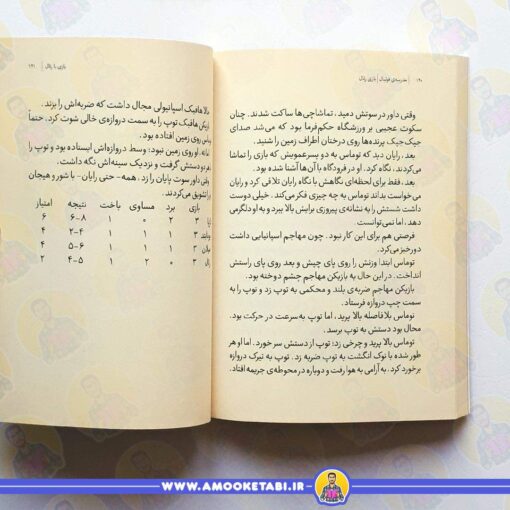 ۱۴۰ مدرسه‌ی فوتبال | بازی با رئال
وقتی داور در سوتش دمید، تماشاچی‌ها ساکت شدند. چنان
سکوت عجیبی بر ورزشگاه حکم‌فرما بود که می‌شد صدای
جیک‌جیک پرنده‌های روی درختان اطراف زمین را شنید.
بعد، رایان دید که توماس به دو پسرعمویش که بازی را تماشا
می‌کردند، نگاه کرد. او در فرودگاه با آن‌ها آشنا شده بود.
بعد، فقط برای لحظه‌ای نگاهش با نگاه رایان تلاقی کرد و رایان
می‌خواست بداند توماس به چه چیزی فکر می‌کند. خیلی دوست
داشت شستش را به نشانه‌ی پیروزی برایش بالا ببرد و به او دلگرمی
دهد، اما نمی‌توانست.
فرصتی هم برای این کار نبود. چون مهاجم اسپانیایی داشت
دورخیز می‌کرد.
توماس ابتدا وزنش را روی پای چپش و بعد روی پای راستش
انداخت. در این حال به بازیکن مهاجم چشم دوخته بود.
بازیکن مهاجم ضربه‌ی بلند و محکمی به توپ زد و توپ را به
سمت چپ دروازه فرستاد.
توماس بلافاصله بالا پرید، اما توپ به‌سرعت در حرکت بود.
محال بود دستش به توپ برسد.
توماس بالا پرید و چرخی زد؛ توپ از دستش سر خورد. اما او هر
طور شده با نوک انگشت به توپ ضربه زد. توپ به تیرک دروازه
برخورد کرد. به آرامی به هوا رفت و دوباره در محوطه‌ی جریمه افتاد.
بازی با رئال ۱۴۱
هافبک اسپانیولی مجال داشت که ضربه‌اش را بزند.
هافبک توپ را به سمت دروازه‌ی خالی شوت کرد. حتماً
روی زمین افتاده بود.
او روی زمین نبود؛ وسط دروازه‌اش ایستاده بود و توپ را
دو دستش گرفت و نزدیک سینه‌اش نگه داشت.
داور سوت پایان را زد، همه- حتی رایان- با شور و هیجان
تشویق می‌کردند.
بازی برد مساوی باخت نتیجه امتیاز
۳ ۲ ۰ ۱ ۸-۶ ۶
۳ ۱ ۱ ۱ ۴-۲ ۴
۳ ۱ ۱ ۱ ۶-۵ ۴
۳ ۰ ۲ ۱ ۵-۴ ۲
WWW.AMOOKETABI.IR